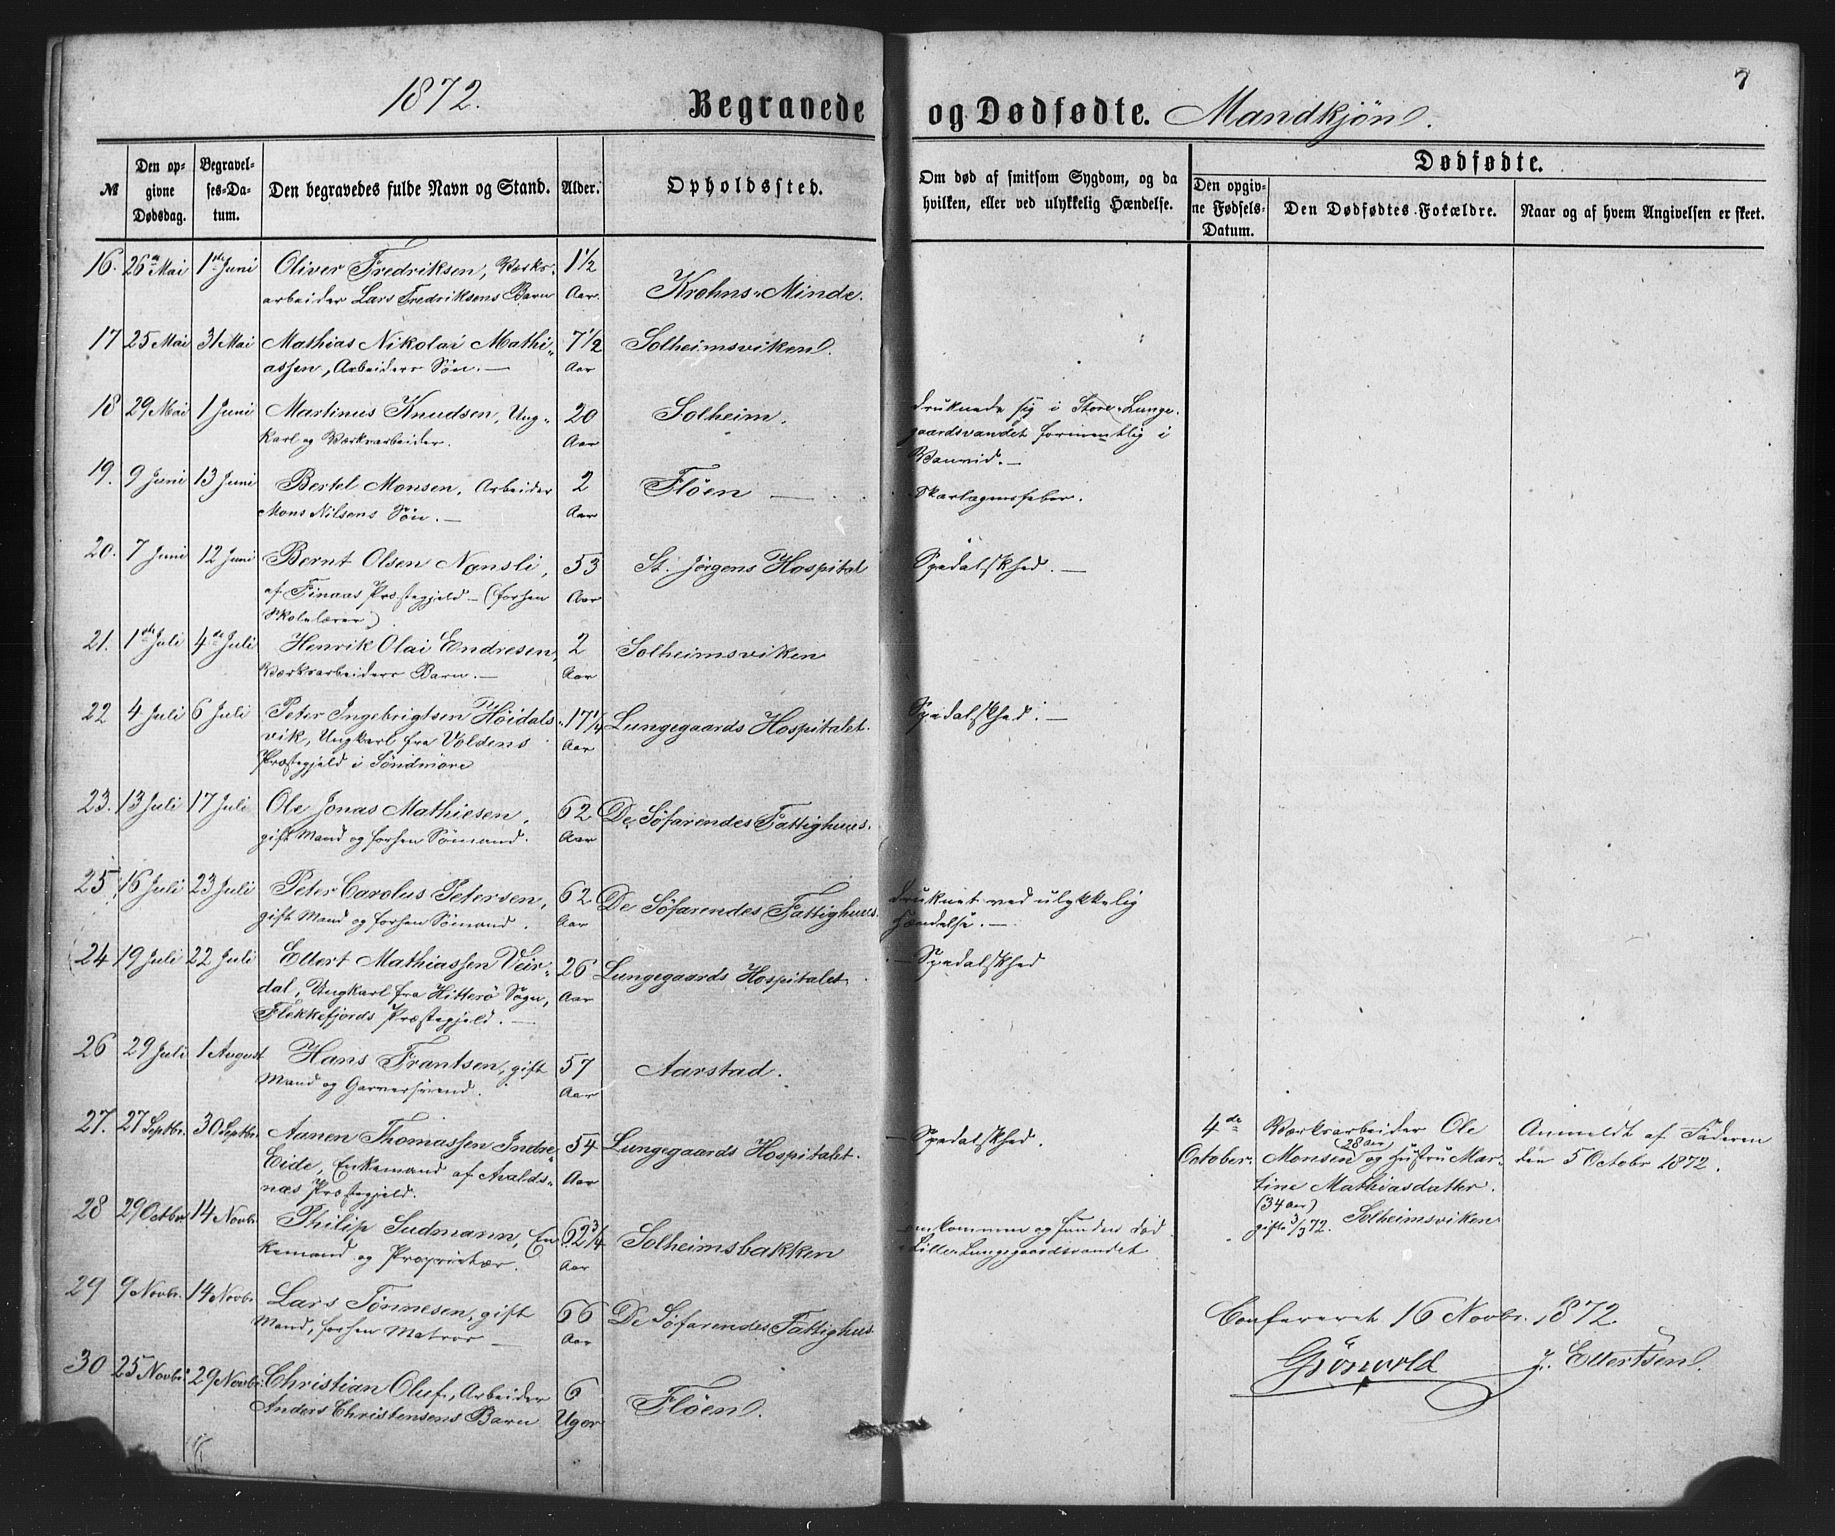 7
1872.
Begravede og Dødfødte. Mandkjøn.
№
Den opgivne Dødsdag.
Begravelses-Datum.
Den begravedes fulde Navn og Stand.
Alder.
Opholdssted.
Om død af smitsom Sygdom, og da
hvilken, eller ved ulykkelig Hændelse.
Dødfødte.
Den opgivne Fødsels-Datum.
Den Dødfødtes Forældre.
Naar og af hvem Angivelsen er skeet.
16. 26de Mai 1ste Juni Oliver Fredriksen, Værks- 1 1/2
arbeider Lars Fredriksens Barn Aar. Krohns-Minde.
17 25 Mai 31 Mai Mathias Nikolai Mathi- 7 1/2 Solheimsviken.
assen, Arbeiders Søn. — Aar
18 29 Mai 1 Juni Martinus Knudsen, Ung- 20 Solheim. druknede sig i Store-Lunge-
karl og Værksarbeider. Aar gaardsvandet formentlig i
Vanvid. —
19. 9 Juni 13 Juni Bertel Monsen, Arbeider 2 Flöen — Skarlagensfeber.
Mons Nilsens Søn. — Aar
20. 7 Juni 12 Juni Bernt Olsen Nonsli, 53 St. Jørgens Hospital Spedalskhed. —
af Finaas Præstegjeld — (forhen Aar
Skolelærer)
21. 1de Juli 4de Juli Henrik Olai Endresen, 2 Solheimsviken
Værksarbeiders Barn. — Aar
22 4 Juli 6 Juli Peter Ingebrigtsen Höidals- 17 1/4 Lungegaards Hospitalet. Spedalskhed. —
vik, Ungkarl fra Voldens Aar
Præstegjeld i Söndmöre
23. 13 Juli 17 Juli Ole Jonas Mathiesen, 62 De Söfarendes Fattighuus.
gift Mand og forhen Sömand. Aar
25 16 Juli 23 Juli Peter Carolus Petersen, 62 De Söfarendes Fattighuus. druknet ved ulykkelig
gift Mand og forhen Sömand. Aar Hændelse. —
24 19 Juli 22 Juli Ellert Mathiassen Veir- 26 Lungegaards Hospitalet. — Spedalskhed
dal, Ungkarl fra Hitterö Sogn, Aar
Flekkefjords Præstegjeld. —
26 29 Juli 1 August Hans Frantsen, gift 57 Aarstad.
Mand og Garversvend. Aar
27. 27 Septbr. 30 Septbr. Aanen Thomassen Indre- 54 Lungegaards Hospitalet. — Spedalskhed.
Eide, Enkemand af Avalds- Aar
næs Præstegjeld.
28 29 Octbr 14 Novbr. Philip Sudmann, En- 62 3/4 Solheimsbakken omkommen og funden død
kemand og Proprietær. Aar i Lille Lungegaardsvandet
29 9 Novbr. 14 Novbr. Lars Tönnesen, gift 66 De Söfarendes Fattighus
Mand, forhen Matros — Aar
30 25 Novbr. 29 Novbr. Christian Oluf, Arbeider 6 Flöen.
Anders Christensens Barn Uger
4de
October.
Værksarbeider Ole
(28 aar)
Monsen og Hustru Mar-
tine Mathiasdatter.
(34 aar)
gifte 3/3 72. Solheimsviken
Anmeldt af Faderen
den 5 Octobr 1872.
Confereret 16 Novbr. 1872.
Grönvold J. Ellertsen.